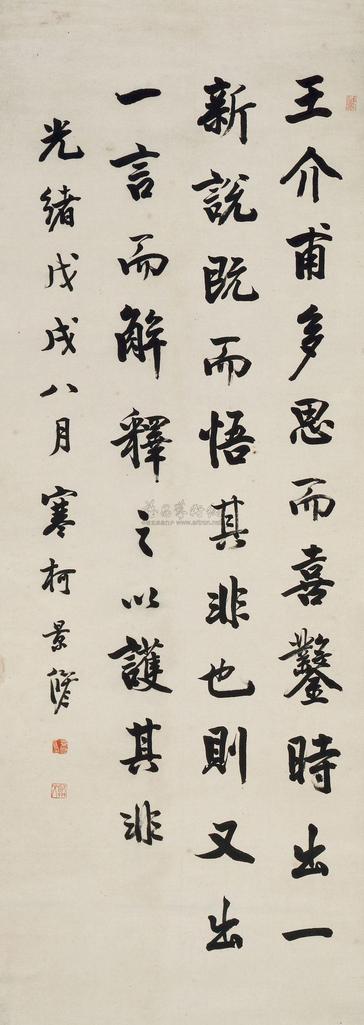 王介甫多思而喜鑿時出一
新說既而悟其非也則又出
一言而解釋之以護其非
光緒戊戌八月寒柯景
www.artron.net